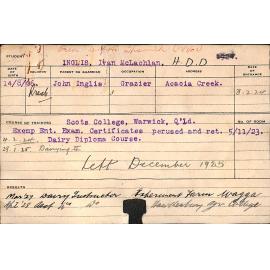 STUDENT
INGLIS, Ivan McLachlan. H.D.D
DATE OF BIRTH RELIGION PARENT OR GUARDIAN OCCUPATION ADDRESS DATE OF ENTRY
14/8/06 Presb John Inglis Grazier Acacia Creek. 8.2.24
Scots College, Warwick, Q'Ld.
Exemp Ent. Exam. Certificates perused and ret. 5/11/23.
Dairy Diploma Course.
Left December 1925
RESULTS
Mar '27 Dairy Instructor Experiment Farm Wagga
Asst Do Do Hawkesbury Agr College